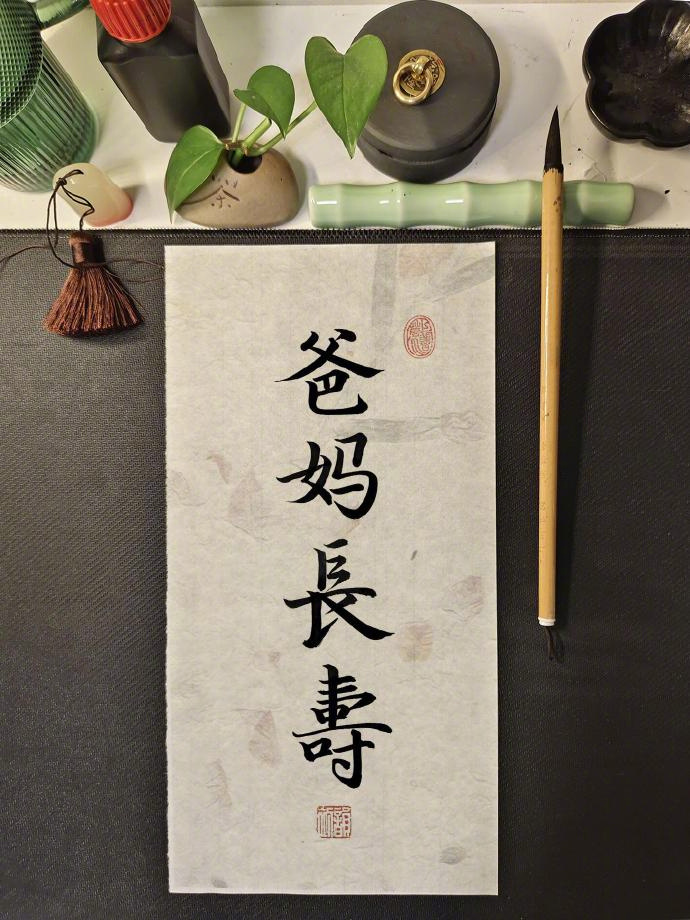 爸妈長壽